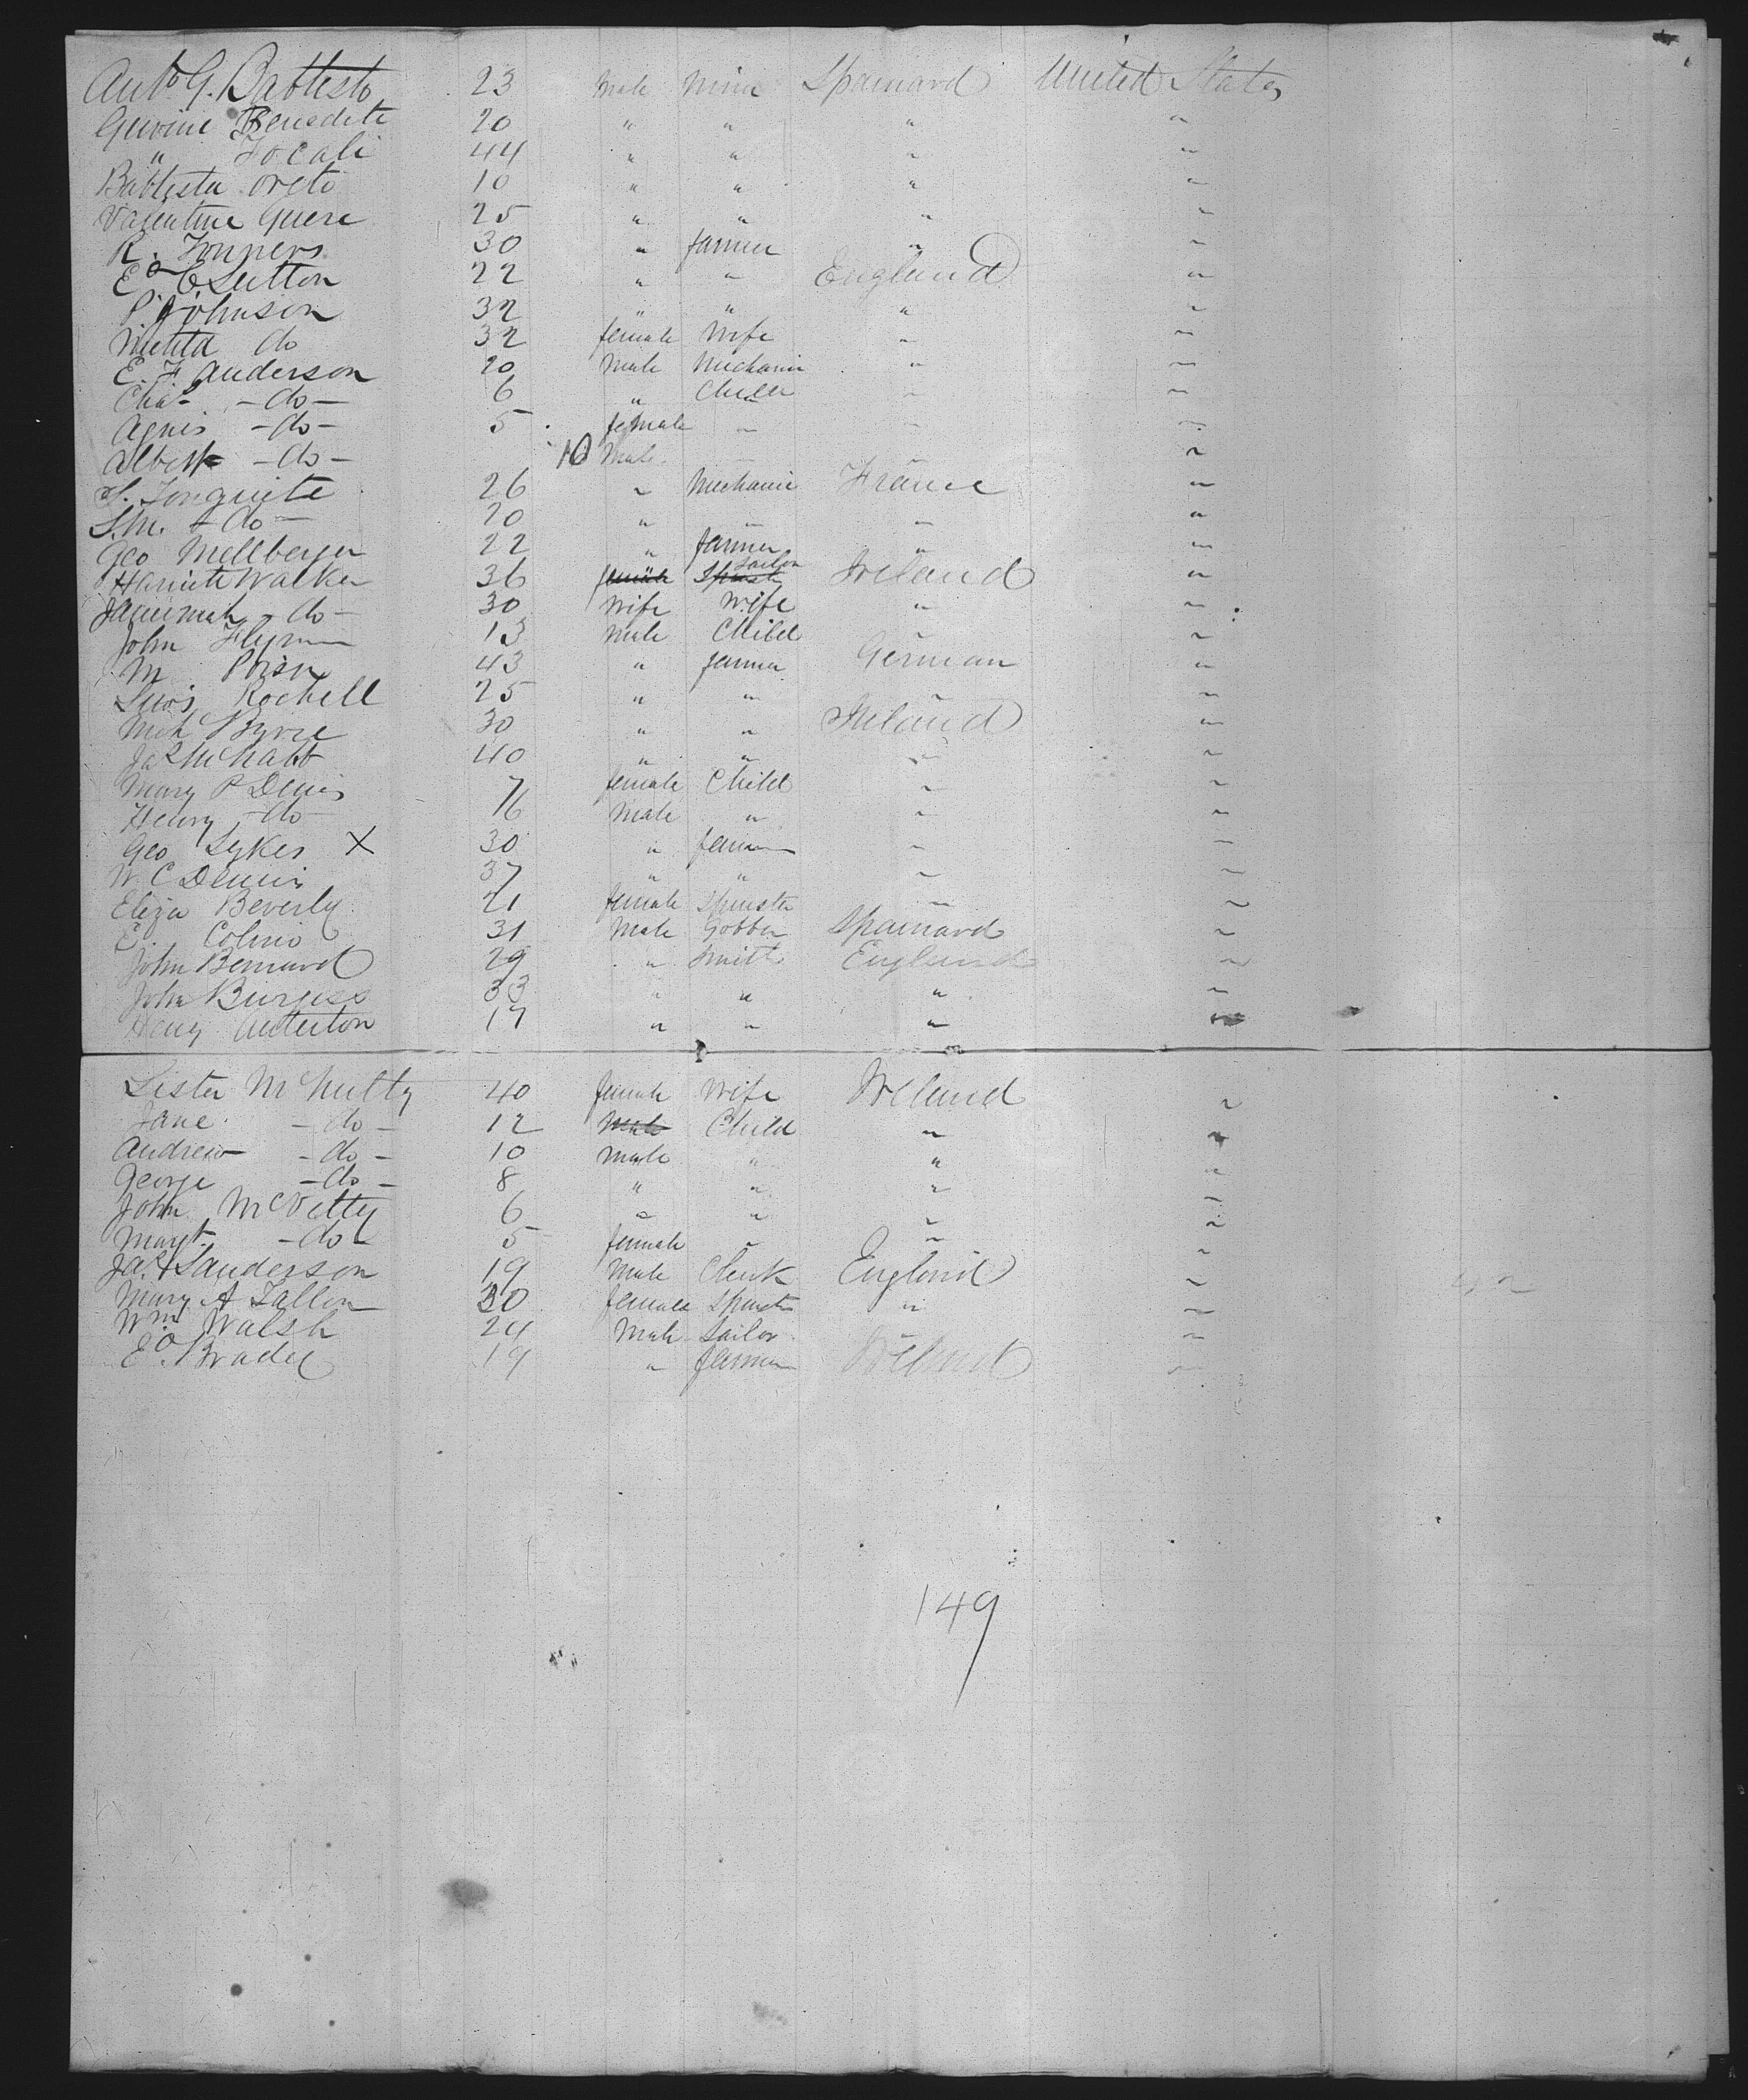 Anto G. Battisto 23 Male Miner Spainard United States
Guvini Benedeti 20 " " " "
" Focali 44 " " " "
Battista oreto 10 " " " "
Valentine Guere 25 " " " "
R. 30 " farmer " "
Ed C Sutton 22 " " England "
P. Johnson 32 " " " "
Matilda do 32 female Wife " "
E. F. Anderson 20 Male Mechanic " "
Chas - do - 6 " Child " "
Agnes - do - 5 female " " "
Albert - do - 10 Male " " "
S. Tonquite 26 " Mechanic France "
S. M. - do - 20 " " " "
Geo Mellberger 22 " farmer " "
Harriet Walker 36 female Spinst Sailor Ireland "
Jamimah - do - 30 Wife Wife " "
John Flynn 13 Male Child " "
M 43 " farmer German "
Lewis Rochell 25 " " " "
Mich Byrne 30 " " Ireland "
Jas McNabb 40 " " " "
Mary P Denis 7 female Child " "
Henry - do - 6 Male " " "
Geo Sykes X 30 " farmer " "
W. C Dennis 37 " " " "
Eliza Beverly 21 female Spinster " "
E. Colmio 31 Male Jobber Spainard "
John Bernard 29 " Smith England "
John Burgess 33 " " " "
Henry Auterton 17 " " " "
Lister McNulty 40 female Wife Ireland "
Jane - do - 12 Male Child " "
Andrew - do - 10 male " " "
George - do - 8 " " " "
John McVitty 6 " " " "
Margt. - do - 5 female " " "
Jas Sanderson 19 Male Clerk England "
Mary A Tallon 30 female Spinster " "
Wm Walsh 24 Male Sailor " "
Ed. Bradey 19 " farmer Ireland "
42
149